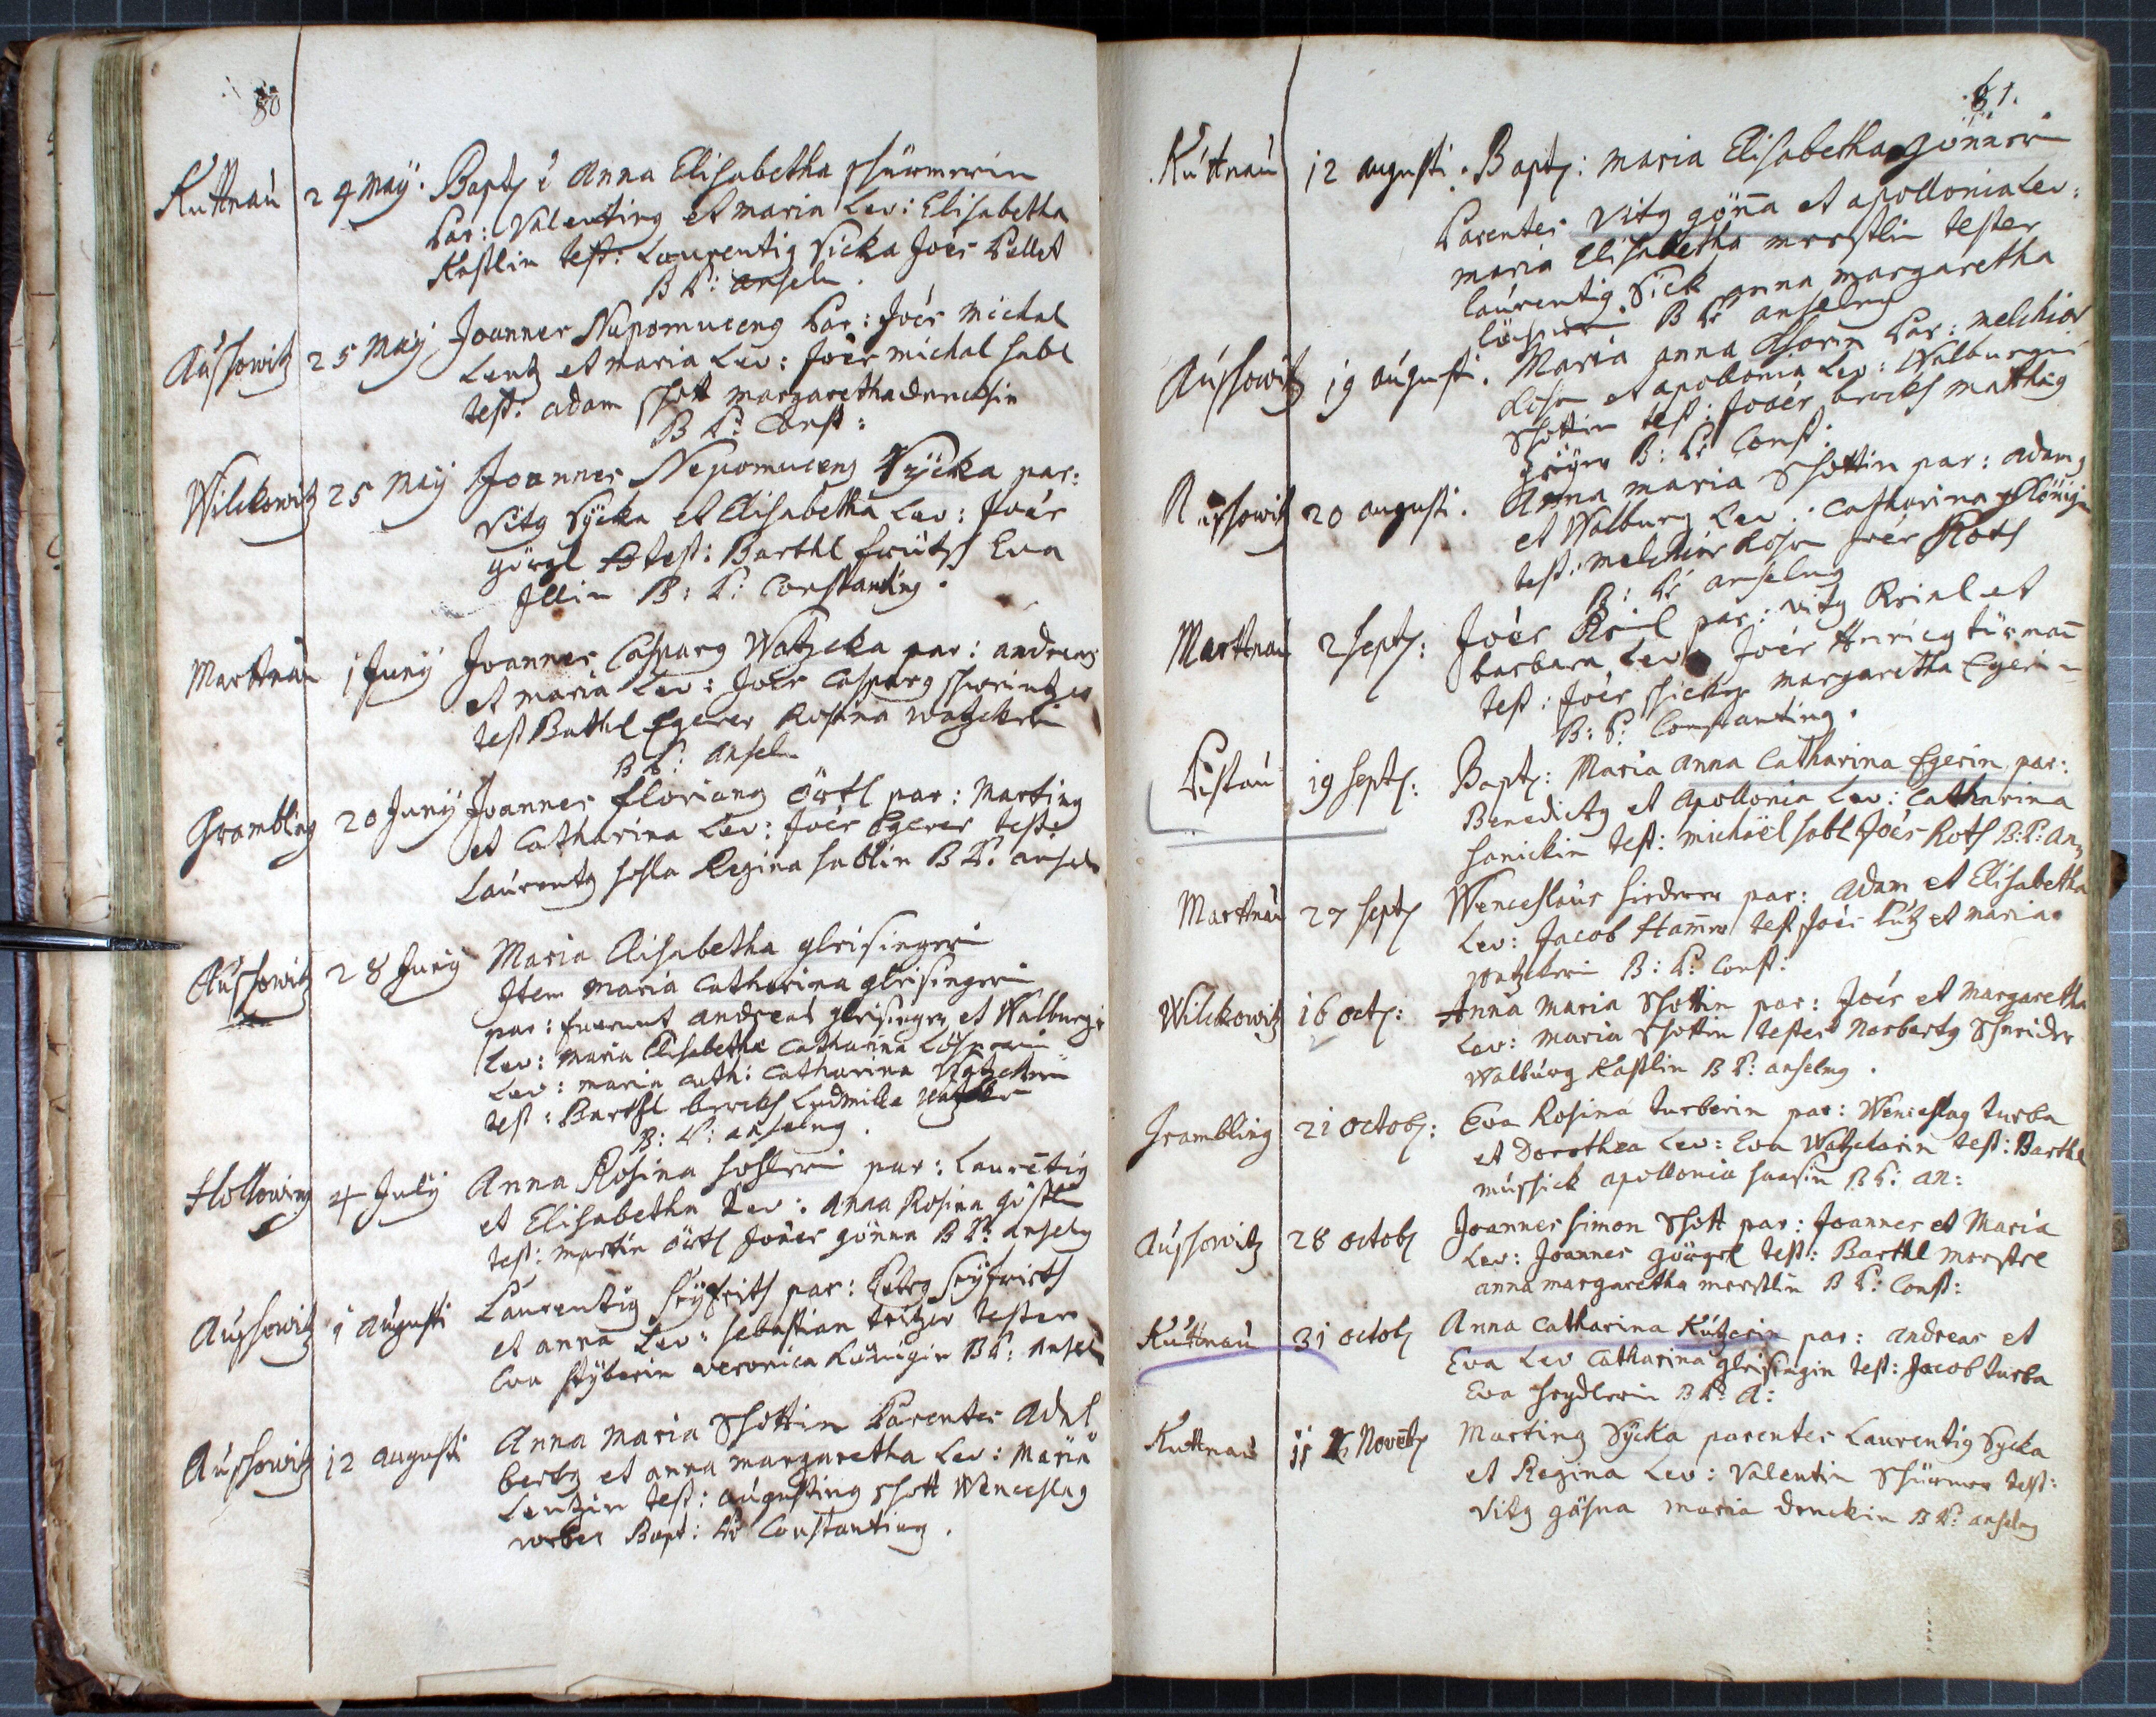 80
Kuttnau 24 May. Bapt: è Anna Elisabetha schürmerin
Par: Valenting et Maria Lev: Elisabetha
Kastlin test: Laurentig Sicka Joës Pellet
B P: Anselm.
Aussowitz 25 May Joannes Nepomuceng Par: Joës Michal
Lentz et Maria Lev: Joës Michal habl
test: Adam schott Margaretha
B P: Const:
Wilckowitz 25 May Joannes Nepomuceng Sycka par:
Vitg Sycka et Elisabetha Lev: Joës
görgl test: Barthl Eva
Illin B: P: Constanting.
Marttnau 1 Juny Joannes Casparg Watzcka par: andreas
et maria Lev: Joës Casparg
test Barthl Egerer Rosina watzckrin
B P: Ansel
Grambling 20 Juny Joannes Floriang örtl par: Marting
et Catharina Lev: Joës Egerer test:
Laurentg hosla Regina hablin B P: ansel
Aussowitz 28 Juny Maria Elisabetha gleisingrin
Item Maria Catharina gleisingrin
par: fuerunt andreas gleisinger et Walburga
Lev: Maria Elisabetha Catharina
Lev: maria cath: Catharina
test: Barthl Ludmilla
B: P: anselmg.
Hollowing 4 July Anna Rosina hoslerin par: Laurētig
et Elisabetha Lev: Anna Rosina göstlin
test: martin örtl Joäes gönna B P: anselg
Aussowitz 1 augusti Laurentig Seÿfrith par: Petrg Seÿfrith
et anna Lev: sebastian testes
Eva veronica Künigin B P: Ansel
Aussowitz 12 augusti Anna Maria Schottin Parentes Adal
bertg et anna margaretha Lev: Maria
Lentzin test: augusting schott Wenceslag
weber Bapt: P: Constanting.
81.
Kuttnau 12 augusti. Bapt: maria Elisabetha gönnerin
Parentes Vitg göña et apollonia Lev:
maria Elisabetha merstlin testes
laurentig Sick anna margaretha
B P: anselmg
Aussowitz 19 augusti. Maria anna Par: melchior
et apollonia Lev: Walburgin
Schottin test: Joäes matthig
B: P: Const:
Aussowitz 20 augusti. Anna maria Schottin par: adamg
et Walburg Lev: Catharina
test: melchior Joës Roth
B: P: anselmg
Marttnau 2 Sept: Joës Kril par: vitg Kril et
barbara Lev: Joës Henricg
test: Joës margaretha Egerin
B: P: Constanting.
Pistau 19 Sept: Bapt: Maria Anna Catharina Egerin par:
Benedictg et Apollonia Lev: Catharina
hanickin test: michaël habl Joës Roth B: P: An,
Marttnau 27 Sept Wenceslaus par: Adam et Elisabetha
Lev: Jacob Hamer test Joës Lutz et maria
B: P: Const:
Wilckowitz 16 oct: Anna Maria Schottin par: Joës et Margaretha
Lev: Maria Schottin testes Norbertg Schneider
Walburg Kastlin B P: anselmg.
Grambling 21 octob: Eva Rosina turberin par: Wenceslag turba
et Dorothea Lev: Eva Watzckarin test: Barthl
mussick apollonia haasin B P: an:
Aussowitz 28 octob Joannes Simon Schott par: Joannes et Maria
Lev: Joannes görgel test: Barthl merstel
anna margaretha merstlin B P: Const:
Kuttnau 31 octob Anna Catharina Kutzerin par: andreas et
Eva Lev Catharina gleisingin test: Jacob turba
Eva B P: A:
Kuttnau 11 Novēb Marting Sycka parentes Laurentig Sycka
et Regina Lev: Valentin Schürmer test:
Vitg maria B P: anselmg